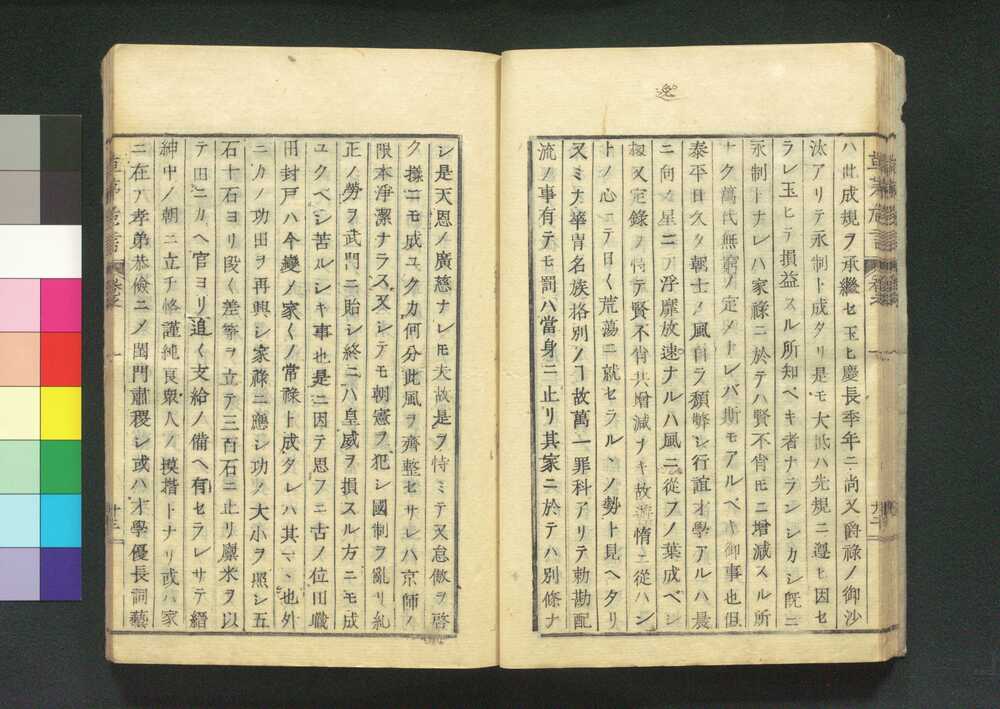 逸
ハ此成規ヲ承繼セ玉ヒ慶長季年ニ尚又爵祿ノ御沙
汰アリテ永制ト成タリ是モ大抵ハ先規ニ遵ヒ因セ
ラレ玉ヒテ損益スル所知ベキ者ナランシカシ既ニ
永制トナレハ家祿ニ於テハ賢不肖ニ增減スル所
ナク萬代無窮ノ定メナレバ斯モアルベキ御事也但
泰平日久ク朝士ノ風自ラ頽弊シ行誼才學アルハ晨
ニ向ノ星ニ乄浮靡放逸ナルハ風ニ從フノ葉成ベシ
又定錄ヲ恃テ賢不肖共增減ナキ故遊惰ニ從ハン
トノ心ニテ日く荒蕩ニ就セラルヽノ勢ト見ヘタリ
又ミナ華胄名族格別ノヿ故萬一罪科アリテ勅勘配
流ノ事有テモ罰ハ當身ニ止リ其家ニ於テハ別條ナ
シ是天恩ノ廣慈ナレモ夫故是ヲ恃ミテ又怠傲ヲ啓
ク樣ニモ成ユクカ何分此風ヲ齊整セサレハ京師ノ
限本淨潔ナラス又シテモ朝憲ヲ犯シ國制ヲ亂リ糺
正ノ勞ヲ武門ニ貽シ終ニハ皇威ヲ損スル方ニモ成
ユクベシ苦ルシキ事也是ニ因テ思フニ古ノ位田職
田封戸ハ今變乄家くノ常祿ト成タレハ其マヽ也外
ニカノ功田ヲ再興シ家祿ニ應シ功ノ大小ヲ照シ五
石十石ヨリ段く差等ヲ立テ三百石ニ止リ廩米ヲ以
テ田ニカヘ官ヨリ追く支給ノ備ヘ有セラレサテ縉
紳中ノ朝ニ立チ恪謹純良衆人ノ摸楷トナリ或ハ家
ニ在ハ孝弟恭儉ニ乄閨門肅穆シ或ハ才學優長詞藝